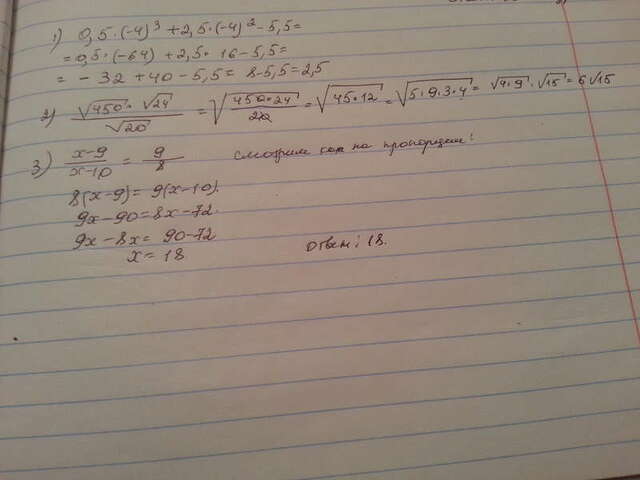 1) 0,5·(-4)³ + 2,5·(-4)² - 5,5 =
= 0,5·(-64) + 2,5·16 - 5,5 =
= - 32 + 40 - 5,5 = 8 - 5,5 = 2,5
2) √450 · √24 / √20 = √(450·24 / 20) = √(45·12) = √(5·9·3·4) = √(4·9) · √15 = 6√15
3) x-9 / x-10 = 9 / 8 смотрим как на пропорцию!
8(x-9) = 9(x-10).
9x - 90 = 8x - 72.
9x - 8x = 90 - 72
x = 18
Ответ: 18.